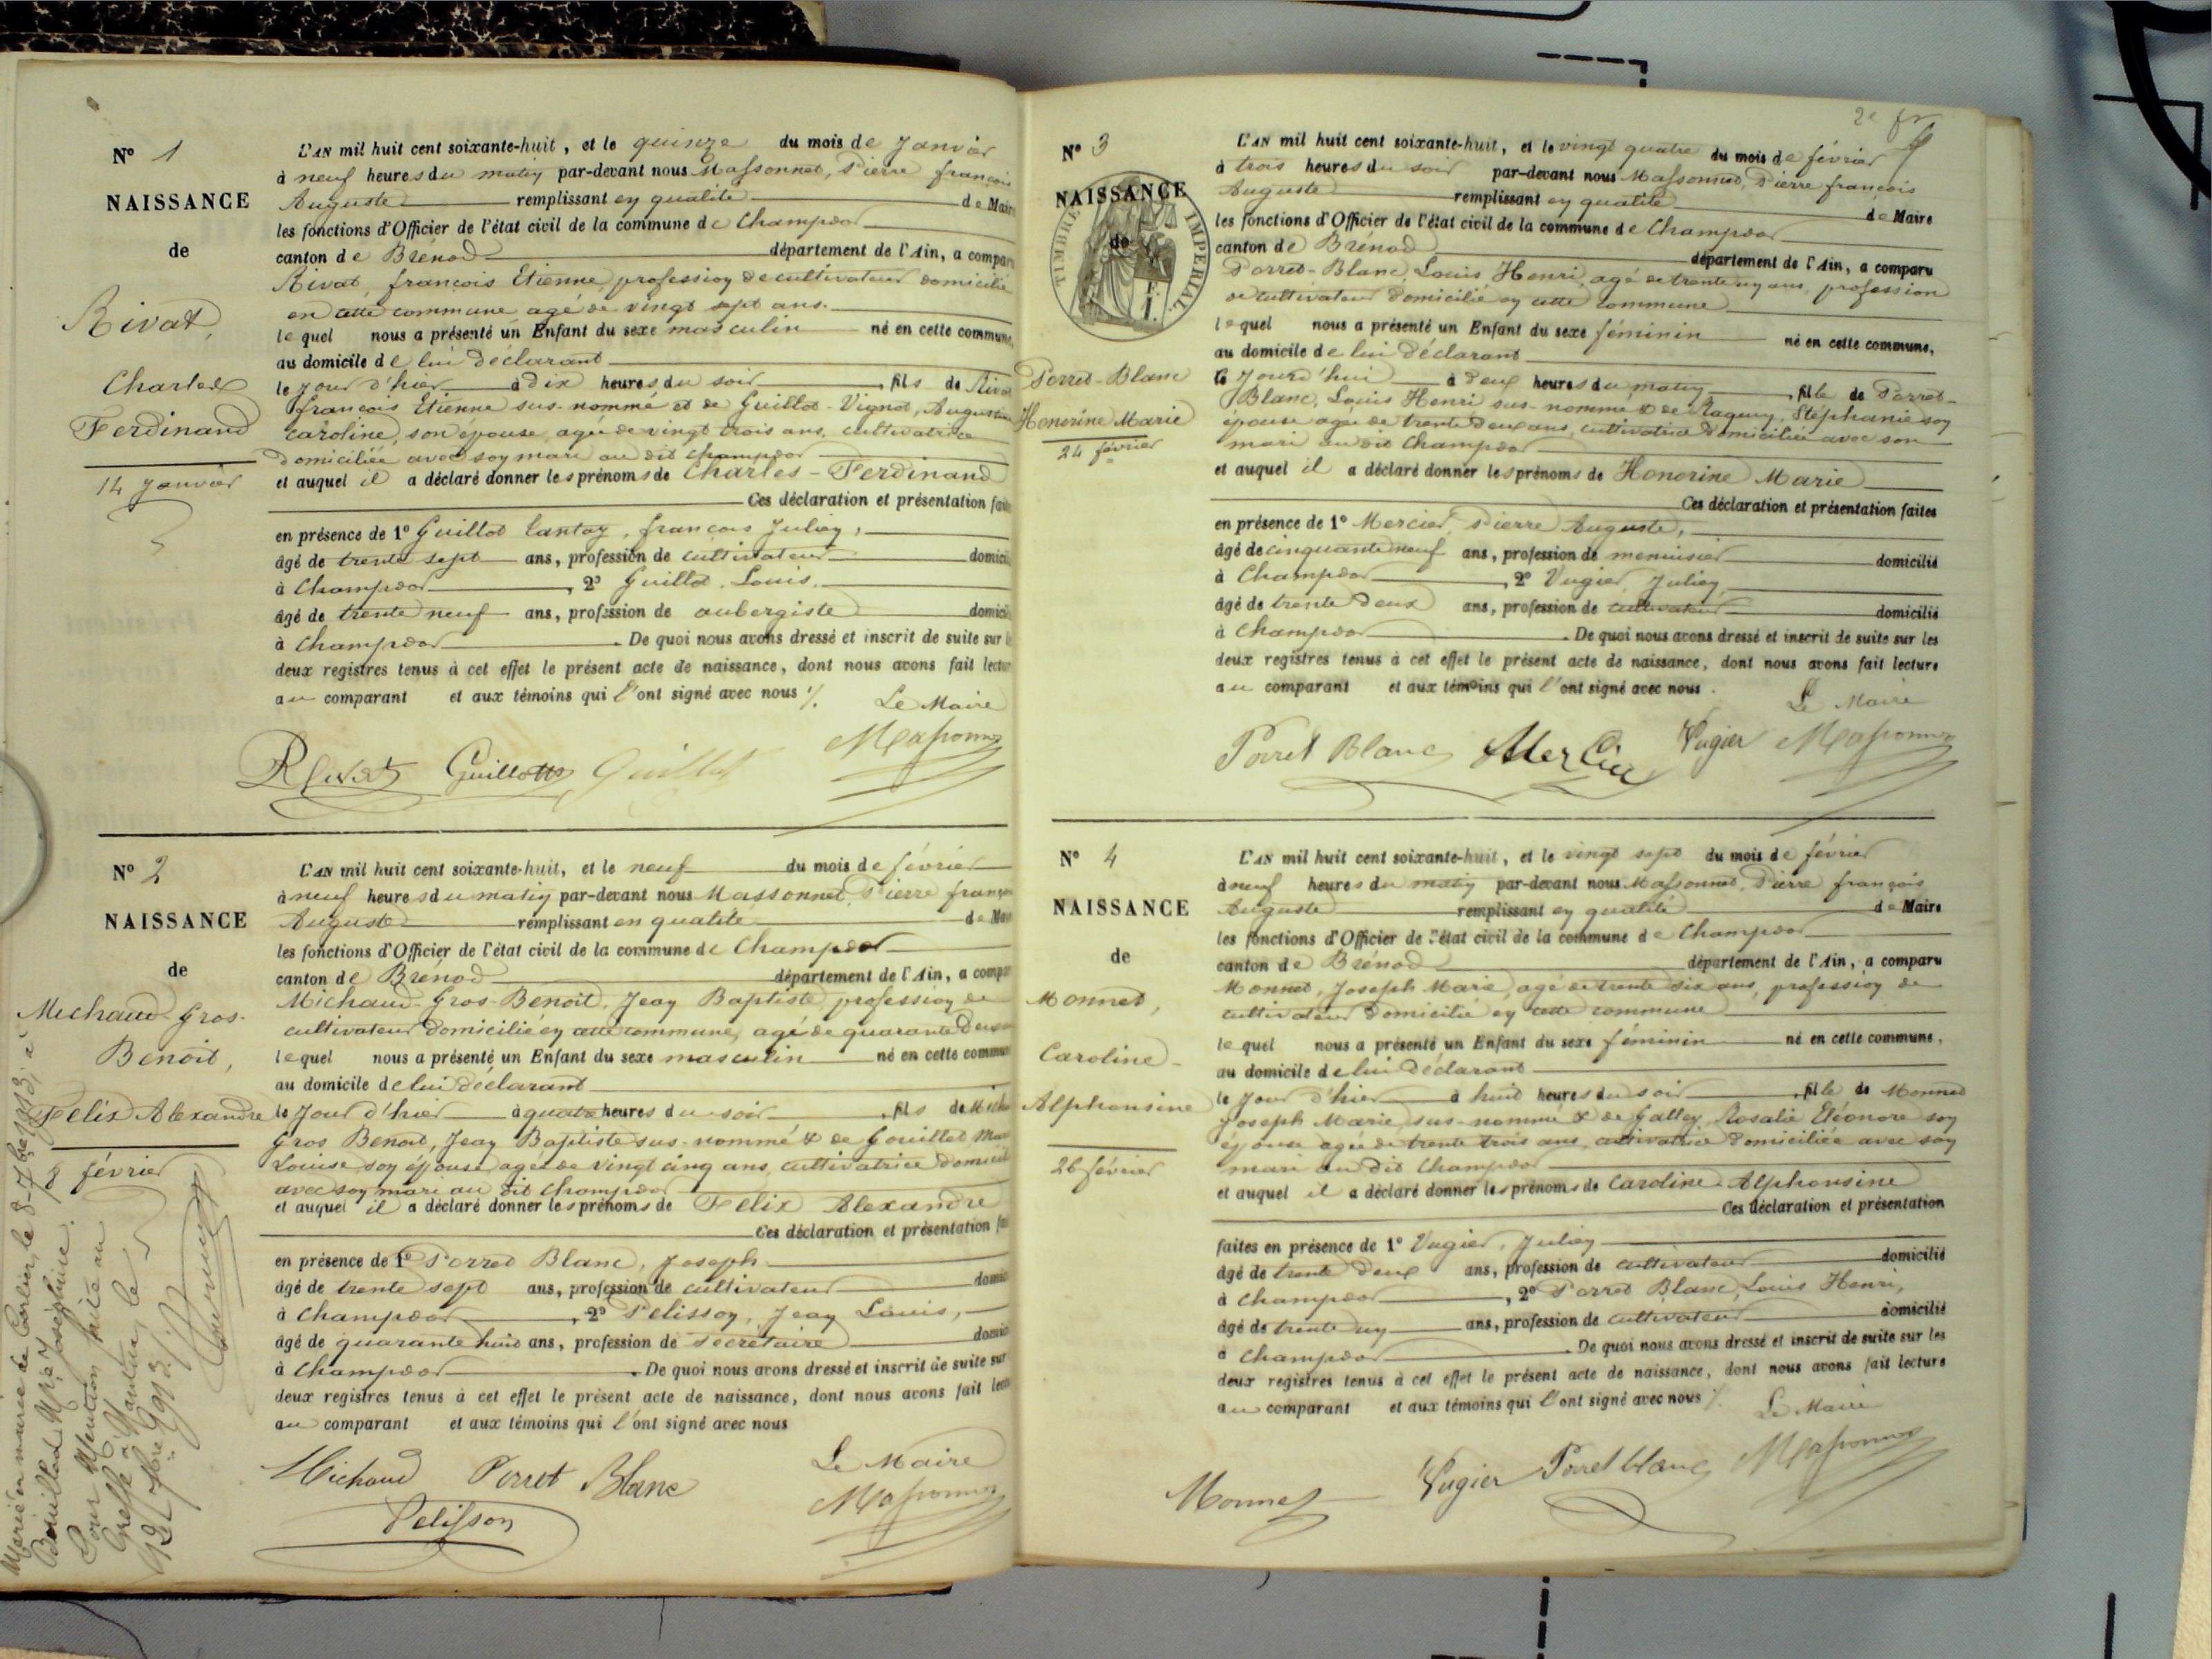 N° 1
NAISSANCE
de
Rivat,
Charles
Ferdinand
14 Janvier
L'AN mil huit cent soixante-huit, et le quinze du mois de Janvier
à neuf heures du matin par-devant nous Massonnet, Pierre françois
Auguste remplissant en qualité de Maire
les fonctions d'Officier de l'état civil de la commune de Champdor
canton de Brénod département de l'Ain, a compar
Rivat, françois Etienne, profession de cultivateur domicilié
en cette commune agé de vingt sept ans.
lequel nous a présenté un Enfant du sexe masculin né en cette commune,
au domicile de lui déclarant
le jour d'hier à dix heures du soir, fils de Rivat
françois Etienne sus-nommé et de Guillot-Vignot, Augustine
caroline, son épouse, agée de vingt trois ans, cultivatrice
domiciliée avec son mari au dit champdor
et auquel il a déclaré donner les prénoms de Charles-Ferdinand
Ces déclaration et présentation
en présence de 1° Guillot, françois Julien,
âgé de trente sept ans, profession de cultivateur
à Champdor, 2° Guillot, Louis,
âgé de trente neuf ans, profession de aubergiste
à Champdor. De quoi nous avons dressé et inscrit de suite sur
deux registres tenus à cet effet le présent acte de naissance, dont nous avons fait lectur
au comparant et aux témoins qui l'ont signé avec nous %.
Le Maire
Rivat Guillot Guillot Massonnet
N° 2
NAISSANCE
de
Michaud Gros-
Benoit,
Felix Alexandre
8 février
Marié en mairie de Corlier, le 8-7bre 1913, à
Josephine.
Pour Mention faite au
Greffe à Nantua, le
L'AN mil huit cent soixante-huit, et le neuf du mois de février
à neuf heures du matin par-devant nous Massonnet, Pierre françois
Auguste remplissant en qualité
les fonctions d'Officier de l'état civil de la commune de Champdor
canton de Brénod département de l'Ain, a compar
Michaud-Gros-Benoit, Jean Baptiste profession de
cultivateur domicilié en cette commune, agé de quarante deux
lequel nous a présenté un Enfant du sexe masculin né en cette commun
au domicile de lui déclarant
le jour d'hier à quatre heures du soir, fils de Mich
Gros Benoit, Jean Baptiste sus-nommé & de Gouillet Mar
Louise son épouse agée de vingt cinq ans, cultivatrice
avec son mari au dit champdor
et auquel il a déclaré donner les prénoms de Felix Alexandre
Ces déclaration et présentation
en présence de 1° Porret Blanc, Joseph
âgé de trente sept ans, profession de cultivateur
à Champdor, 2° Pelisson, Jean Louis,
âgé de quarante huit ans, profession de secrétaire
à Champdor. De quoi nous avons dressé et inscrit de suite sur
deux registres tenus à cet effet le présent acte de naissance, dont nous avons fait
au comparant et aux témoins qui l'ont signé avec nous
Le Maire
Michaud Porret Blanc Massonnet
Pelisson
N° 3
NAISSANCE
de
TIMBRE IMPÉRIAL
Porret-Blanc
Honorine Marie
24 février
L'AN mil huit cent soixante-huit, et le vingt quatre du mois de février
à trois heures du soir par-devant nous Massonnet, Pierre françois
Auguste remplissant en qualité de Maire
les fonctions d'Officier de l'état civil de la commune de Champdor
canton de Brénod département de l'Ain, a comparu
Porret-Blanc, Louis Henri, agé de trente un ans, profession
de cultivateur domicilié en cette commune
lequel nous a présenté un Enfant du sexe féminin né en cette commune,
au domicile de lui déclarant
le jourd'hui à deux heures du matin, fille de Porret-
Blanc, Louis Henri sus-nommé & de Raguin, Stéphanie son
épouse agée de trente deux ans, cultivatrice domiciliée avec son
mari au dit Champdor
et auquel il a déclaré donner les prénoms de Honorine Marie
Ces déclaration et présentation faites
en présence de 1° Mercier, Pierre Auguste,
âgé de cinquante neuf ans, profession de menuisier domicilié
à Champdor, 2° Vugier Julien,
âgé de trente deux ans, profession de cultivateur domicilié
à Champdor. De quoi nous avons dressé et inscrit de suite sur les
deux registres tenus à cet effet le présent acte de naissance, dont nous avons fait lecture
au comparant et aux témoins qui l'ont signé avec nous.
Le Maire
Porret Blanc Mercier Vugier Massonnet
N° 4
NAISSANCE
de
Monnet,
Caroline-
Alphonsine
26 février
L'AN mil huit cent soixante-huit, et le vingt sept du mois de février
à neuf heures du matin par-devant nous Massonnet, Pierre françois
Auguste remplissant en qualité de Maire
les fonctions d'Officier de l'état civil de la commune de Champdor
canton de Brénod département de l'Ain, a comparu
Monnet, Joseph Marie, agé de trente six ans, profession de
cultivateur domicilié en cette commune
lequel nous a présenté un Enfant du sexe féminin né en cette commune,
au domicile de lui déclarant
le jour d'hier à huit heures du soir, fille de Monnet
Joseph Marie, sus-nommé & de Galley, Rosalie Eléonore son
épouse agée de trente trois ans, cultivatrice domiciliée avec son
mari au dit Champdor
et auquel il a déclaré donner les prénoms de Caroline Alphonsine
Ces déclaration et présentation
faites en présence de 1° Vugier, Julien
âgé de trente deux ans, profession de cultivateur domicilié
à Champdor, 2° Porret Blanc, Louis Henri,
âgé de trente un ans, profession de cultivateur domicilié
à Champdor. De quoi nous avons dressé et inscrit de suite sur les
deux registres tenus à cet effet le présent acte de naissance, dont nous avons fait lecture
au comparant et aux témoins qui l'ont signé avec nous %.
Le Maire
Monnet Vugier Porret blanc Massonnet